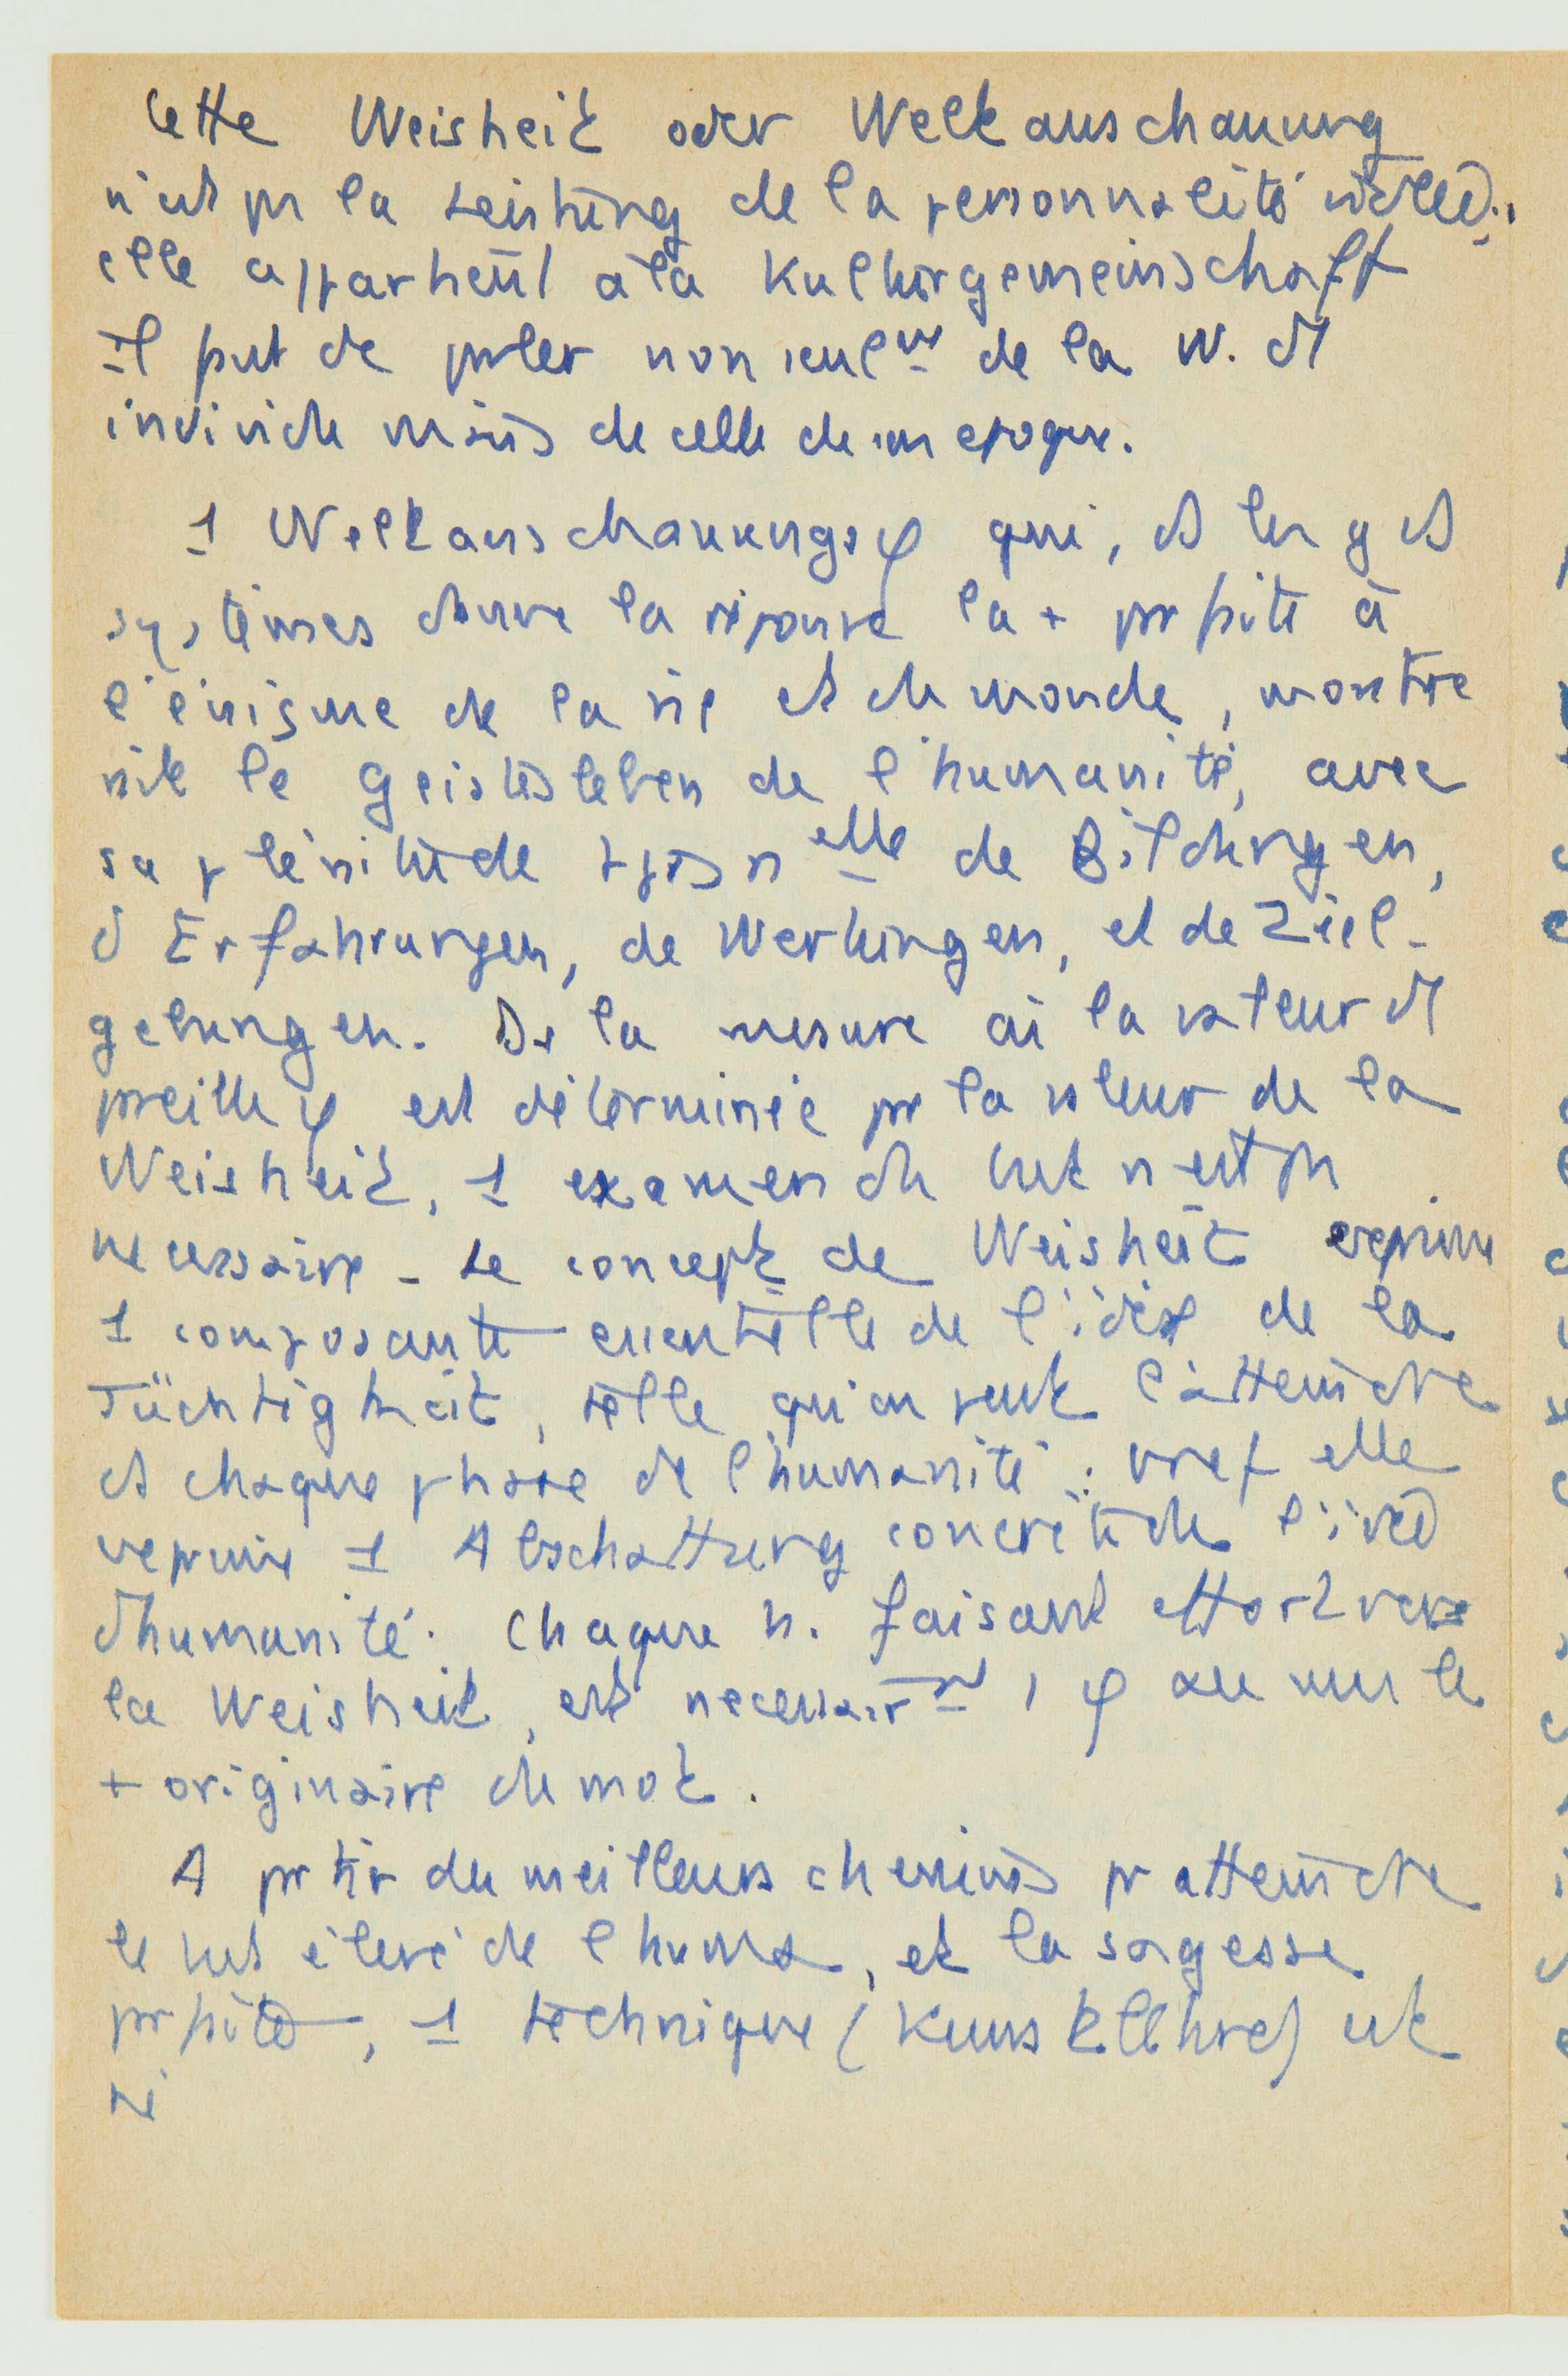 Cette Weisheit oder Weltanschauung
n'est pas la Leistung de la personnalité isolée.,
elle appartient à la Kulturgemeinschaft
Il faut de parler non seulmt de la W. d1
individu mais de celle de son epoque.
1 Weltanschauungsφ qui, ds les gds
systèmes donne la réponse la + parfaite à
l'énigme de la vie et du monde, montre
le Geistesleben de l'humanité, avec
sa plénitude elle de Bildungen,
d'Erfahrungen, de Wertungen, et de Ziel-
gebungen. Ds la mesure où la valeur d1
pareille φ est déterminée par la valeur de la
Weisheit, 1 examen du but n'est pas
necessaire - Le concept de Weisheit exprime
1 composante essentielle de l'idée de la
Tüchtigkeit, telle qu'on peut l'atteindre
ds chaque phase de l'humanité : bref elle
exprime 1 Abschattung concrète de l'idée
d'humanité. Chaque h. faisant effort vers
la Weisheit, est necessairmt, φ au sens le
+ originaire du mot.
A partir des meilleurs chemins pr atteindre
le but élevé de l'huma, et la sagesse
parfaite, 1 technique (Kunstlehre) est